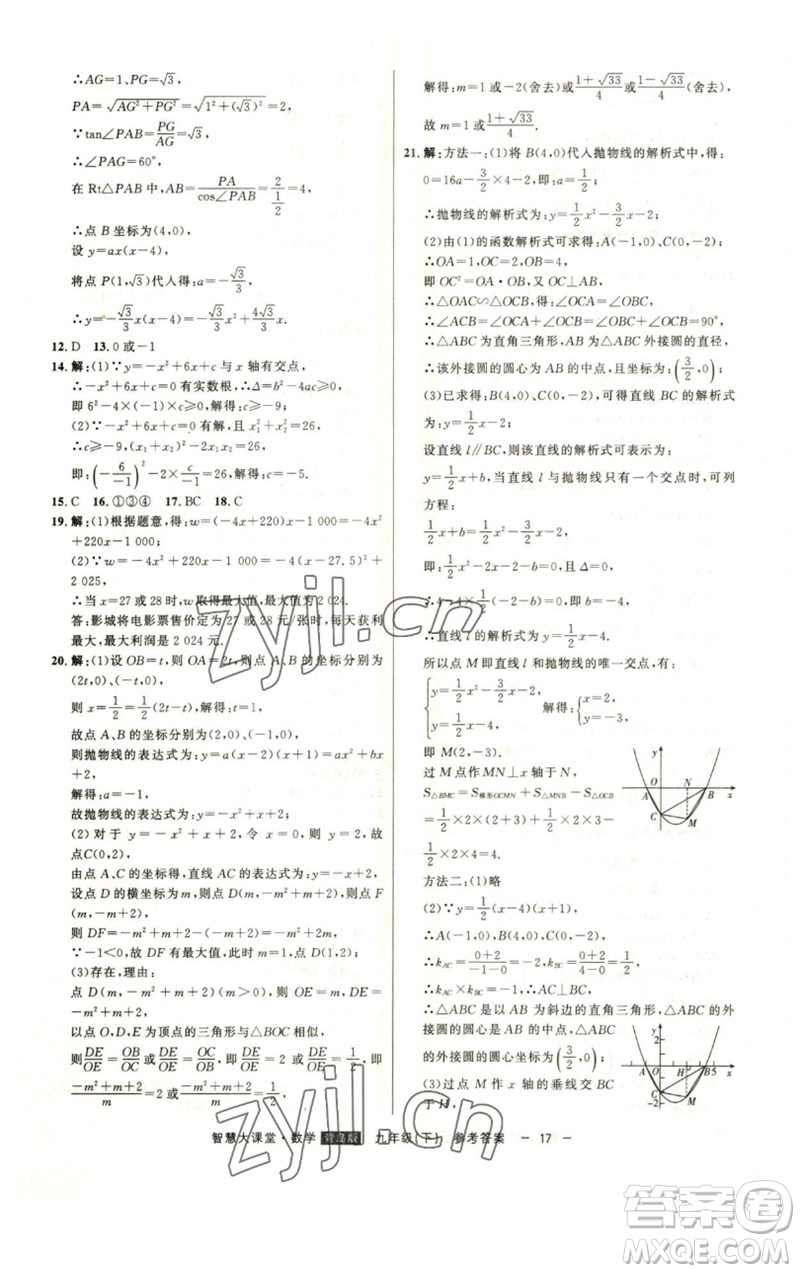 ∴AG=1、PG=√3,
PA=√(AG²+PG²)=√(1²+(√3)²)=2,
∵tan∠PAB=PG/AG=√3,
∴∠PAG=60°,
在 Rt△PAB 中,AB=PA/cos∠PAB=2/(1/2)=4,
∴点 B 坐标为(4,0),
设 y=ax(x-4),
将点 P(1,√3)代入得:a=-√3/3,
∴y=-√3/3x(x-4)=-√3/3x²+4√3/3x.
12. D 13. 0 或-1
14. 解:(1)∵y=-x²+6x+c 与 x 轴有交点,
∴-x²+6x+c=0 有实数根,∴Δ≥0,
即 6²-4×(-1)×c≥0,解得:c≥-9;
(2)∵-x²+6x+c=0,且 x₁²+x₂²=26,
∴c≥-9,(x₁+x₂)²-2x₁x₂=26,
即:(-6/-1)²-2×c/-1=26,解得:c=-5.
15. C 16. ①③④ 17. BC 18. C
19. 解:(1)根据题意,得:w=(-4x+220)x-1 000=-4x²
+220x-1 000;
(2)∵w=-4x²+220x-1 000=-4(x-27.5)²+
2 025,
∴当 x=27 或 28 时,w 取得最大值,最大值为 2 024.
答:影城将电影票售价定为 27 或 28 元/张时,每天获利
最大,最大利润是 2 024 元.
20. 解:(1)设 OB=t,则 OA=2t,则点 A、B 的坐标分别为
(2t,0)、(-t,0),
则 x=1/2=1/2(2t-t),解得:t=1,
故点 A、B 的坐标分别为(2,0)、(-1,0),
则抛物线的表达式为:y=a(x-2)(x+1)=ax²+bx
+2,
解得:a=-1,
故抛物线的表达式为:y=-x²+x+2;
(2)对于 y=-x²+x+2,令 x=0,则 y=2,故
点C(0,2),
由点 A、C 的坐标得,直线 AC 的表达式为:y=-x+2,
设点 D 的横坐标为 m,则点 D(m,-m²+m+2),则点
F(m,-m+2),
则 DF=-m²+m+2-(-m+2)=-m²+2m,
∵-1<0,故 DF 有最大值,此时 m=1,点 D(1,2);
(3)存在,理由:
点 D(m,-m²+m+2)(m>0),则 OE=m,DE=
-m²+m+2,
以点 O,D,E 为顶点的三角形与△BOC 相似,
则DE/OE=OB/OC或DE/OE=OC/OB,即DE/OE=2 或1/2,即
(-m²+m+2)/m=2 或(-m²+m+2)/m=1/2,
解得:m=1 或-2(舍去)或(1+√33)/4或(1-√33)/4(舍去),
故 m=1 或(1+√33)/4.
21. 解:方法一:(1)将 B(4,0)代入抛物线的解析式中,得:
0=16a-3/2×4-2,即:a=1/2;
∴抛物线的解析式为:y=1/2x²-3/2x-2;
(2)由(1)的函数解析式可求得:A(-1,0)、C(0,-2);
∴OA=1,OC=2,OB=4,
即 OC²=OA·OB,又 OC⊥AB,
∴△OAC∽△OCB,得:∠OCA=∠OBC;
∴∠ACB=∠OCA+∠OCB=∠OBC+∠OCB=90°,
∴△ABC 为直角三角形,AB 为△ABC 外接圆的直径,
∴该外接圆的圆心为 AB 的中点,且坐标为:(3/2,0);
(3)已求得:B(4,0)、C(0,-2),可得直线 BC 的解析
式为:y=1/2x-2;
设直线 l∥BC,则该直线的解析式可表示为:
y=1/2x+b,当直线 l 与抛物线只有一个交点时,可列
方程:
1/2x+b=1/2x²-3/2x-2,
即:1/2x²-2x-2-b=0,且Δ=0;
∴4-4×1/2(-2-b)=0,即 b=-4;
∴直线 l 的解析式为 y=1/2x-4.
所以点 M 即直线 l 和抛物线的唯一交点,有:
{y=1/2x²-3/2x-2, y=1/2x-4, 解得:{x=2, y=-3,
即 M(2,-3).
过 M 点作 MN⊥x 轴于 N,
S△BMC=S梯形OCMN+S△MNB-S△OCB
=1/2×2×(2+3)+1/2×2×3-1/2
×2×4=4.
y
O N
A B x
C M
方法二:(1)略
(2)∵y=1/2(x-4)(x+1),
∴A(-1,0),B(4,0),C(0,-2),
∴k_AC=(0+2)/(-1-0)=-2,k_BC=(0+2)/(4-0)=1/2,
∴k_AC×k_BC=-1,∴AC⊥BC,
∴△ABC 是以 AB 为斜边的直角三角形,△ABC 的外
接圆的圆心是 AB 的中点,△ABC
的外接圆的圆心坐标为(3/2,0);
(3)过点 M 作 x 轴的垂线交 BC
于 H,
zyjl.cn
zyjl.cn
智慧大课堂·数学 青岛版 九年级(下) 参考答案 - 17 -
答案卷
MXQE.COM